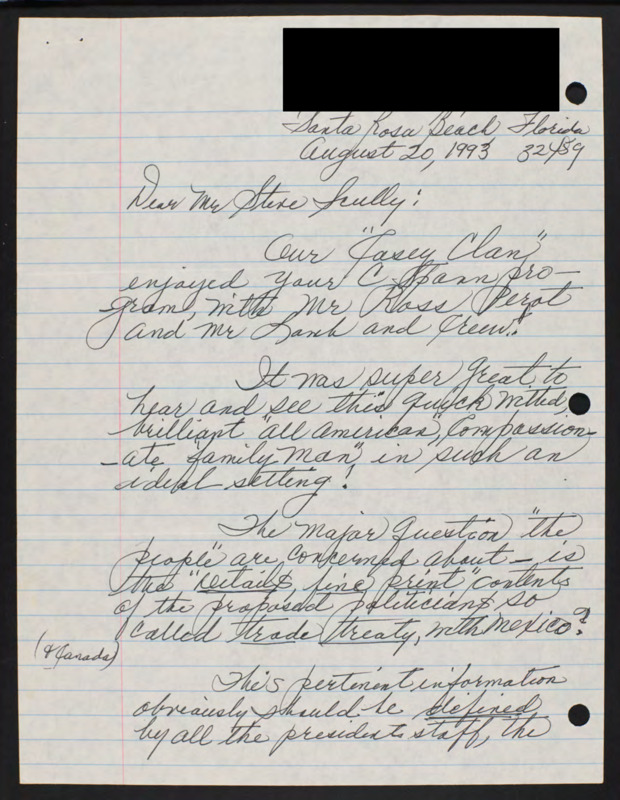 Santa Rosa Beach Florida
August 20, 1993 32459
Dear Mr Steve Scully:
Our "Casey Clan"
enjoyed your C-Spann pro-
gram, with Mr Ross Perot
and Mr Lamb and Crew!
It was super great to
hear and see this quick witted
brilliant "all American", Compassion-
-ate "family man" in such an
ideal setting!
The major question "the
people" are concerned about — is
the "details, fine print" contents
of the proposed politicians, so
called trade treaty, with Mexico?
(& Canada)
This pertinent information
obviously should be defined
by all the presidents staff, the